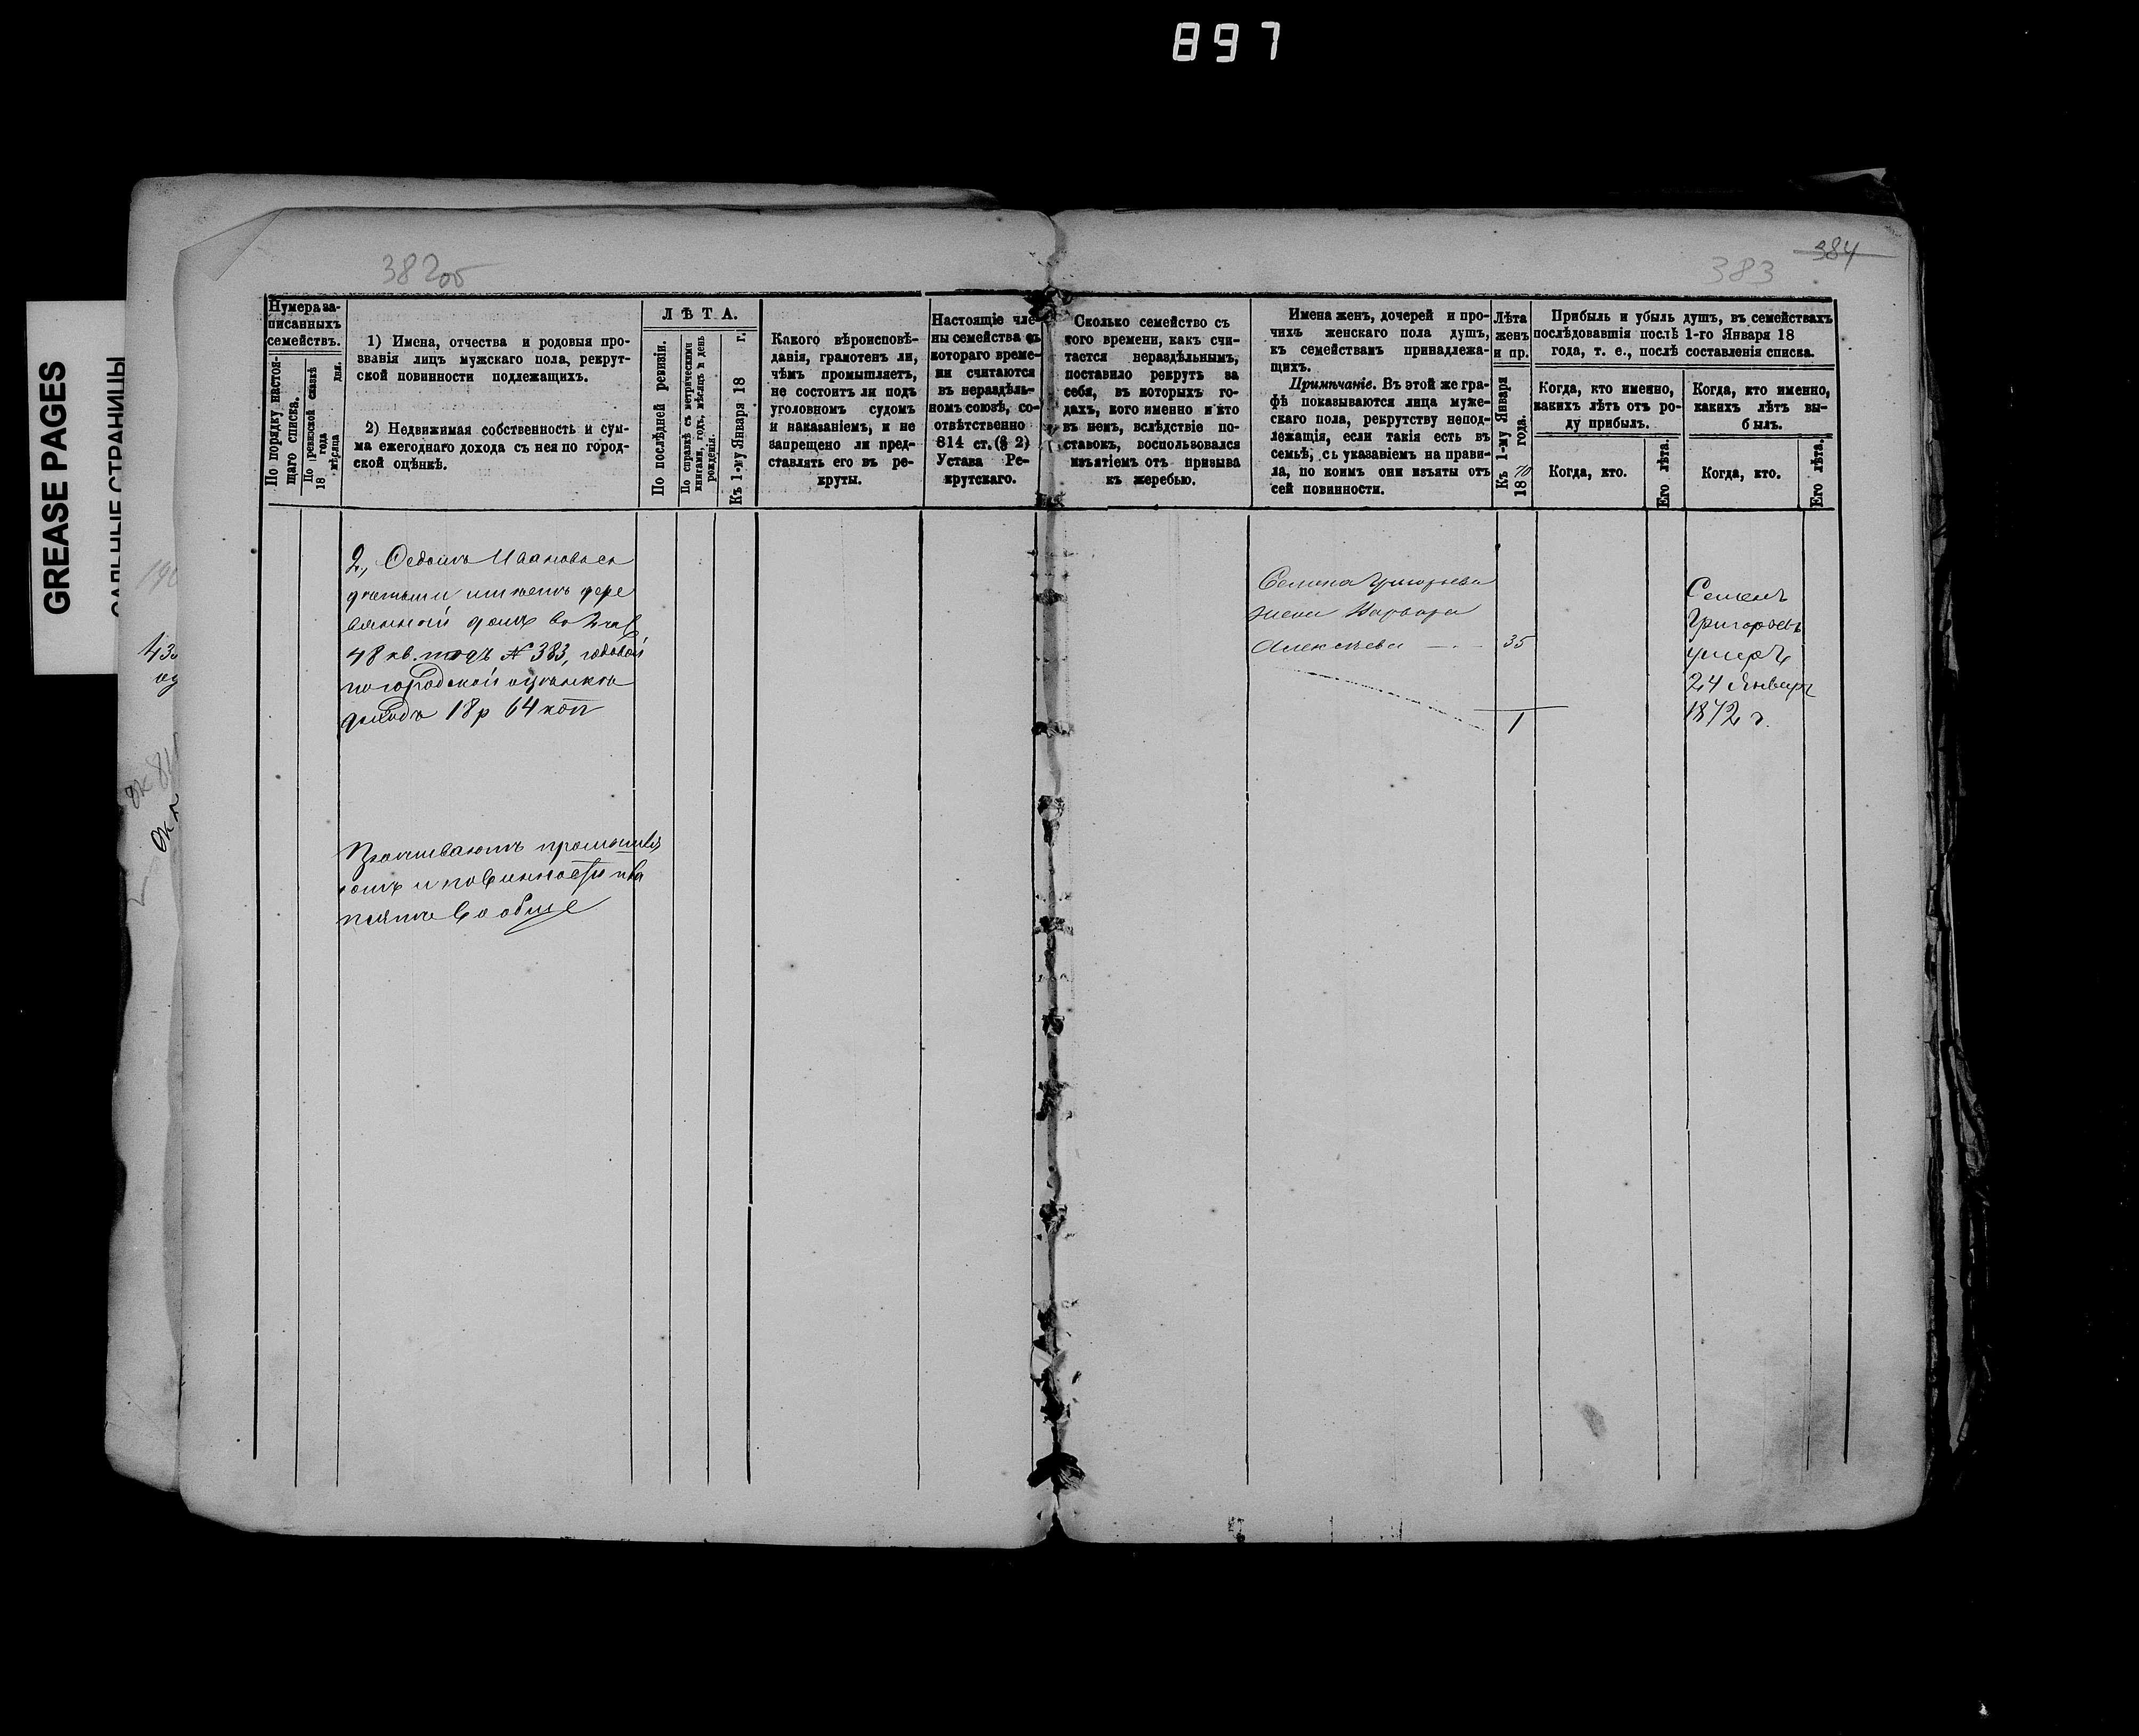 897
GREASE PAGES
САЛЬНЫЕ СТРАНИЦЫ
382об
384
383
Нумера за-
писанныхъ
семействъ.
По порядку настоя-
щаго списка.
По ревизской сказкѣ
18 года
мѣсяца дня.
1) Имена, отчества и родовыя про-
званія лицъ мужскаго пола, рекрут-
ской повинности подлежащихъ.
2) Недвижимая собственность и сум-
ма ежегоднаго дохода съ нея по город-
ской оцѣнкѣ.
ЛѢТА.
По послѣдней ревизіи.
По справкѣ съ метрическими
книгами, годъ, мѣсяцъ и день
рожденія.
Къ 1-му Января 18 г.
Какого вѣроисповѣ-
данія, грамотенъ ли,
чѣмъ промышляетъ,
не состоитъ ли подъ
уголовномъ судомъ
и наказаніемъ, и не
запрещено ли пред-
ставлять его въ ре-
круты.
Настоящіе чле-
ны семейства съ
котораго време-
ни считаются
въ нераздѣль-
номъ союзѣ, со-
отвѣтственно
814 ст. (§ 2)
Устава Ре-
крутскаго.
Сколько семейство съ
того времени, какъ счи-
тается нераздѣльнымъ,
поставило рекрутъ за
себя, въ которыхъ го-
дахъ, кого именно и кто
въ немъ, вслѣдствіе по-
ставокъ, воспользовался
изъятіемъ отъ призыва
къ жеребью.
Имена женъ, дочерей и про-
чихъ женскаго пола душъ,
къ семействамъ принадлежа-
щихъ.
Примѣчаніе. Въ этой же гра-
фѣ показываются лица муже-
скаго пола, рекрутству непод-
лежащія, если такія есть въ
семьѣ, съ указаніемъ на прави-
ла, по коимъ они изъяты отъ
сей повинности.
Лѣта
женъ
и пр.
Къ 1-му Января
1870 года.
Прибыль и убыль душъ, въ семействахъ
послѣдовавшія послѣ 1-го Января 18
года, т. е., послѣ составленія списка.
Когда, кто именно,
какихъ лѣтъ отъ ро-
ду прибылъ.
Когда, кто.
Его лѣта.
Когда, кто именно,
какихъ лѣтъ вы-
былъ.
Когда, кто.
Его лѣта.
2., Федотъ Ивановъ съ
дѣтьми имѣетъ дере
вянный домъ во 2 час
48 кв. подъ № 383, годовой
по городской оцѣнкѣ
доходъ 18р 64 коп
промысл
омъ и повинности
вообще
Семена Григорьева
жена Варвара
Алексѣева — 35
1
Семенъ
Григорьевъ
умеръ
24 Января
1872 г.